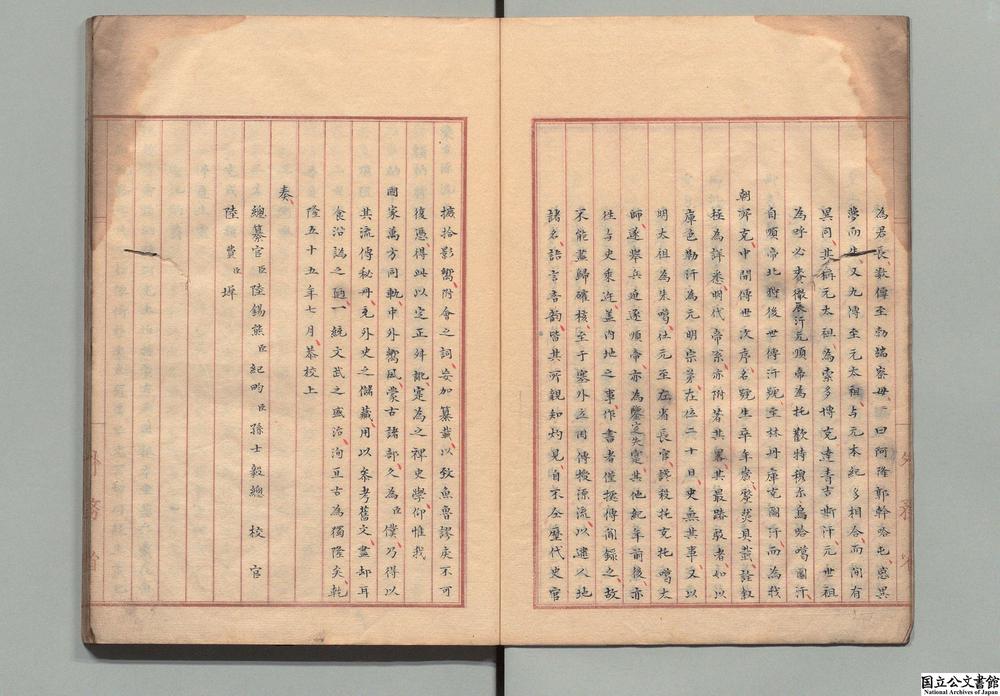 為君長數傳至勃端察母一曰阿隆郭斡哈屯感異
夢而生又九傳至元太祖与元本紀多相合而間有
異同其稱元太祖為索多博克達青吉斯汗元世祖
為呼必賚徹辰汗元順帝為托歡特穆尔烏哈噶圖汗
自順帝北狩後世傳汗號至林丹庫克圖汗而為我
朝所克中間傳世次序名號生卒年歲釐然具載詮叙
極為詳悉明代帝系亦附著其畧其最踳駁者如以
庫色勒汗為元明宗弟在位二十日史無其事又以
明太祖為朱噶仕元至左省長官讒殺托克托噶太
師遂舉兵迫逐順帝亦為鑒空失寔其他紀年前後亦
往与史乘迕盖内地之事作書者僅據傳聞錄之故
不能盡歸確核至于塞外立國傳授源流以逮人地
諸名語言音韵皆其所親知灼見自不仝歷代史官
摭拾影響附會之詞妄加纂載以致魚魯謬戾不可
復憑得此以定正舛訛寔為之裨史學仰惟我
國家萬方同軌中外嚮風蒙古諸部久為臣僕乃得以
其流傳秘冊充外史之儲藏用以參考舊文盡却耳
食沿譌之陋一統文武之盛洽洵亘古為獨隆矣乾
隆五十五年七月恭校上
奏
總纂官臣陸錫熊臣紀昀臣孫士毅總 校 官
陸 費臣墀
外務省
国立公文書館
National Archives of Japan